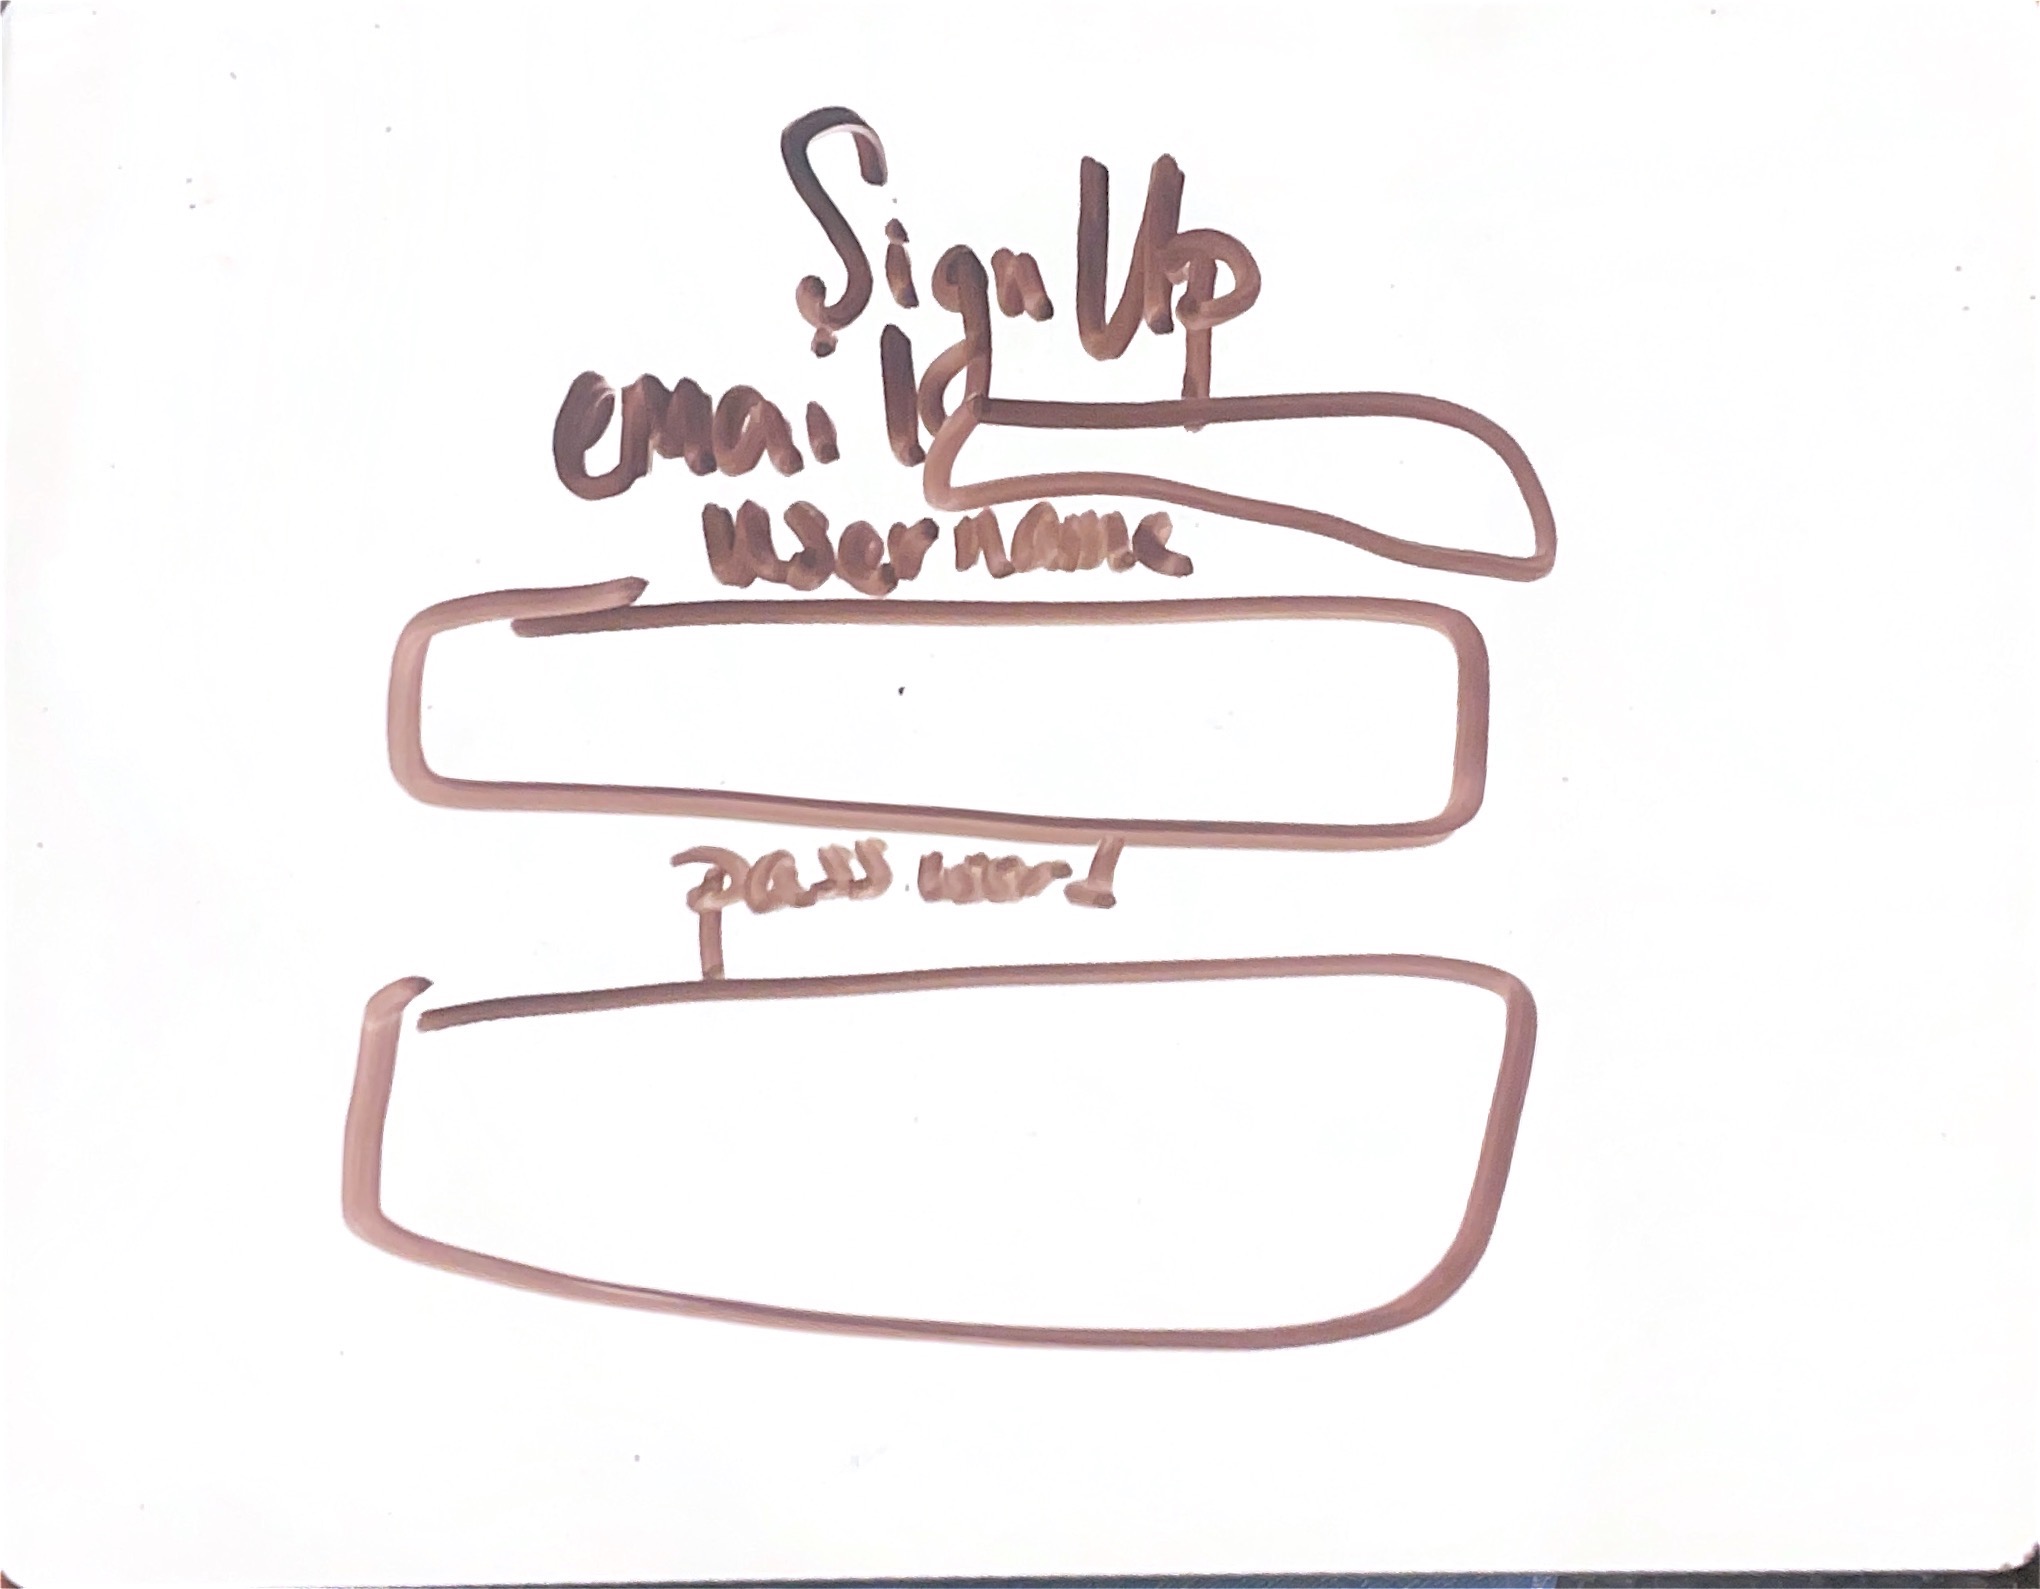 Sign Up
email
username
password